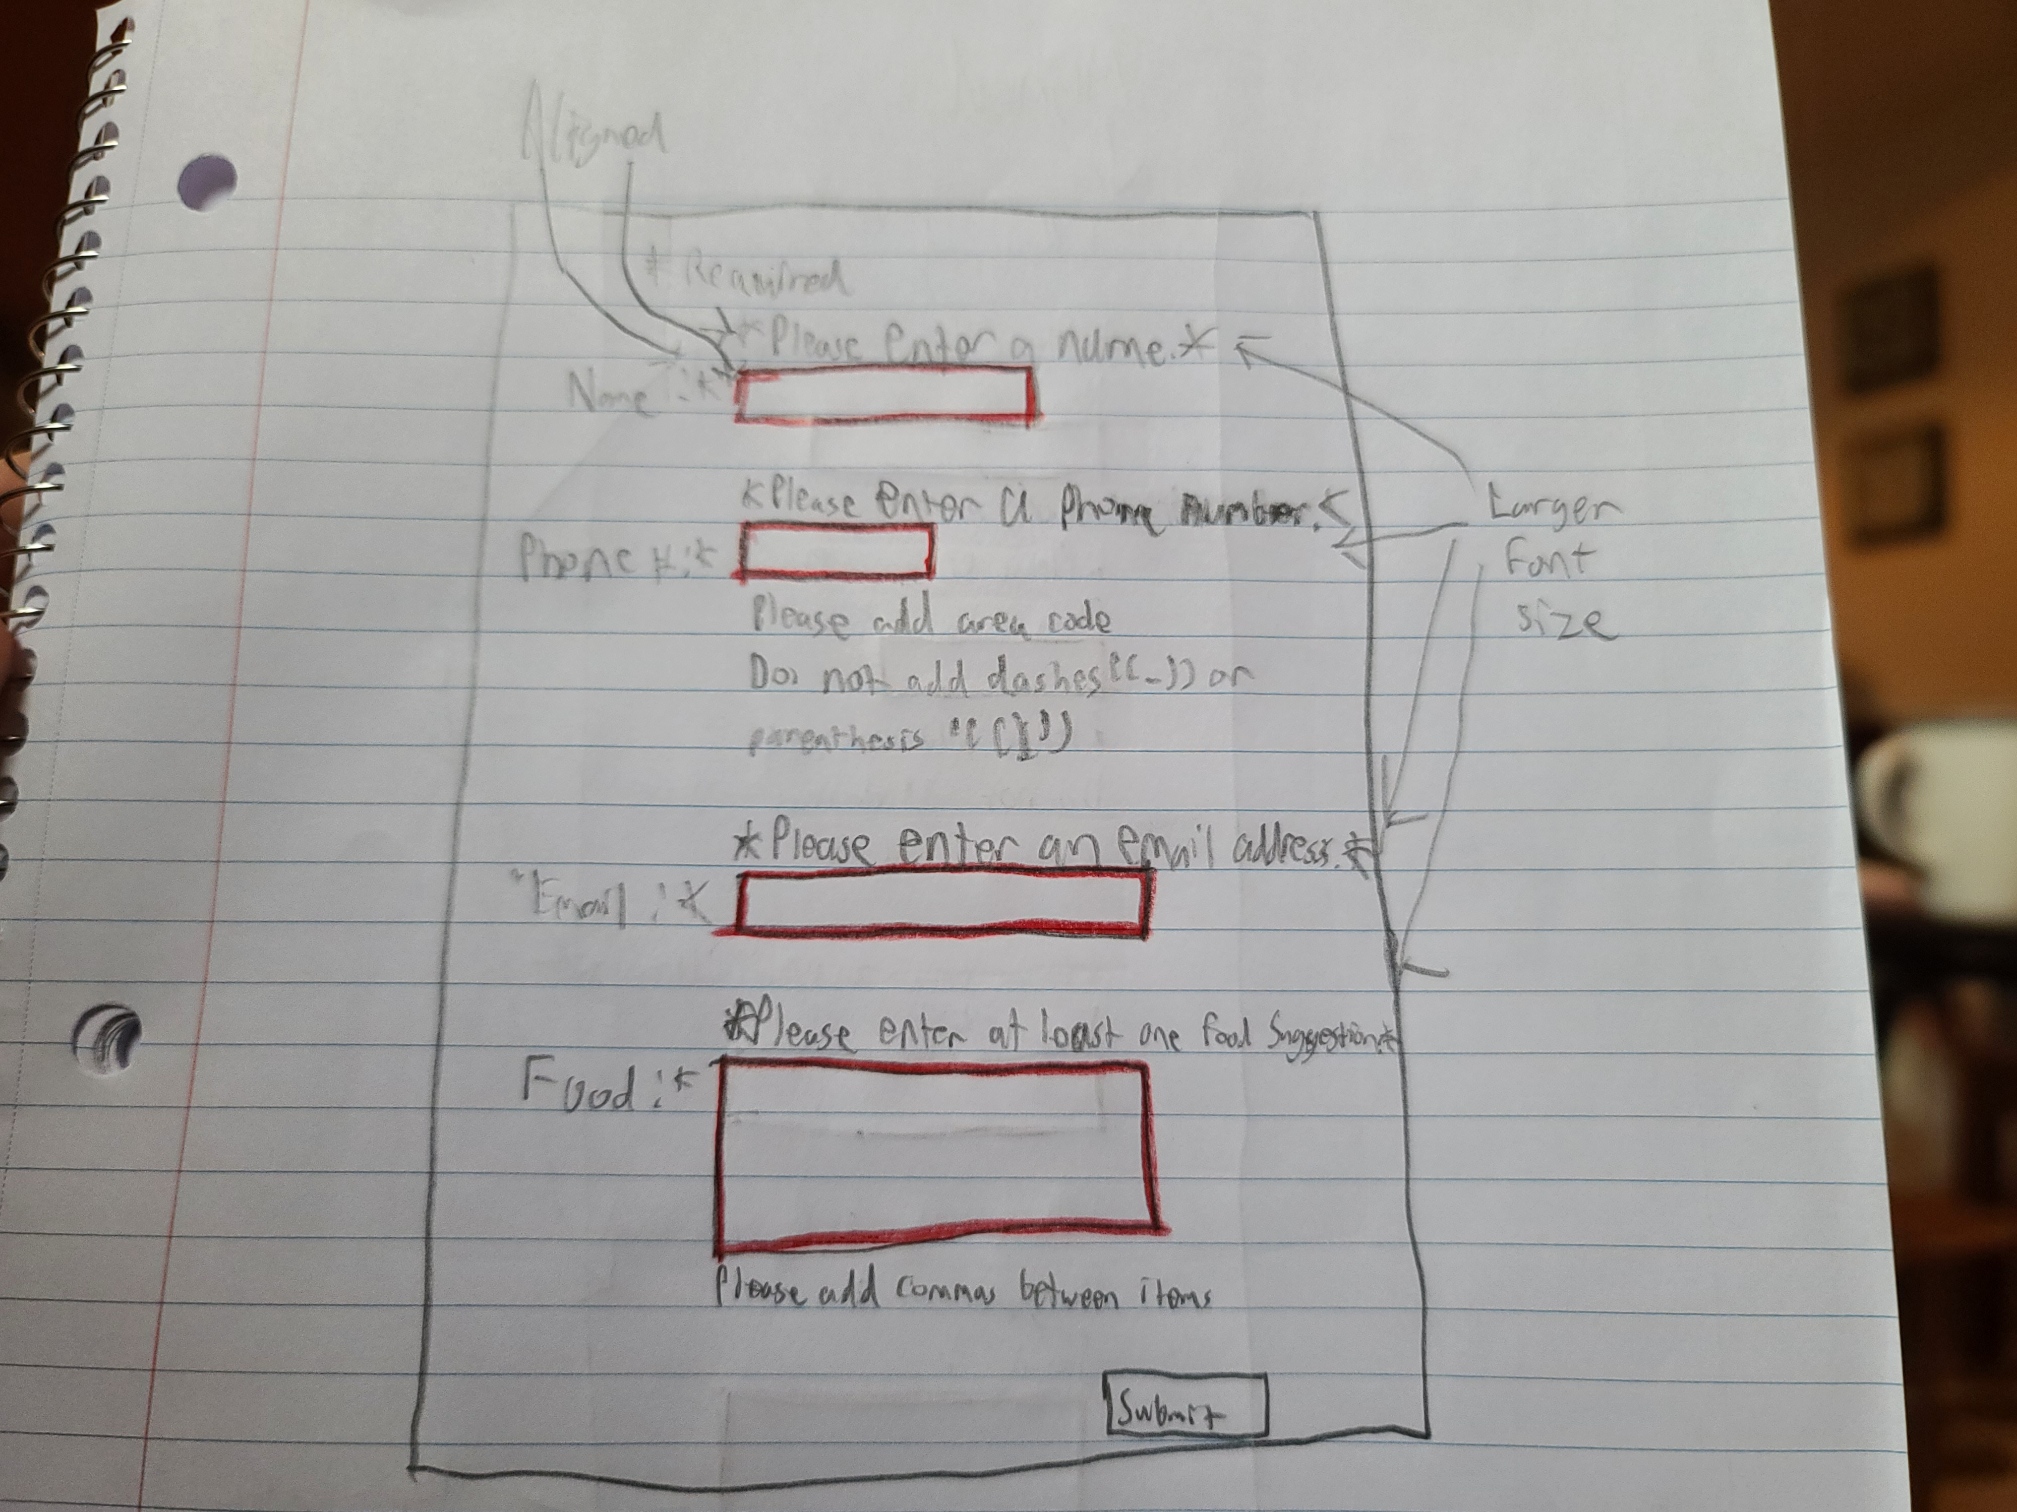 Aligned
* Required
*Please enter a name.*
Name :*
*Please enter a phone number.*
Larger
Font
size
Phone #:*
Please add area code
Do not add dashes "-" or
parenthesis "()"
*Please enter an email address.*
Email :*
*Please enter at least one food suggestion.*
Food :*
Please add commas between items
Submit